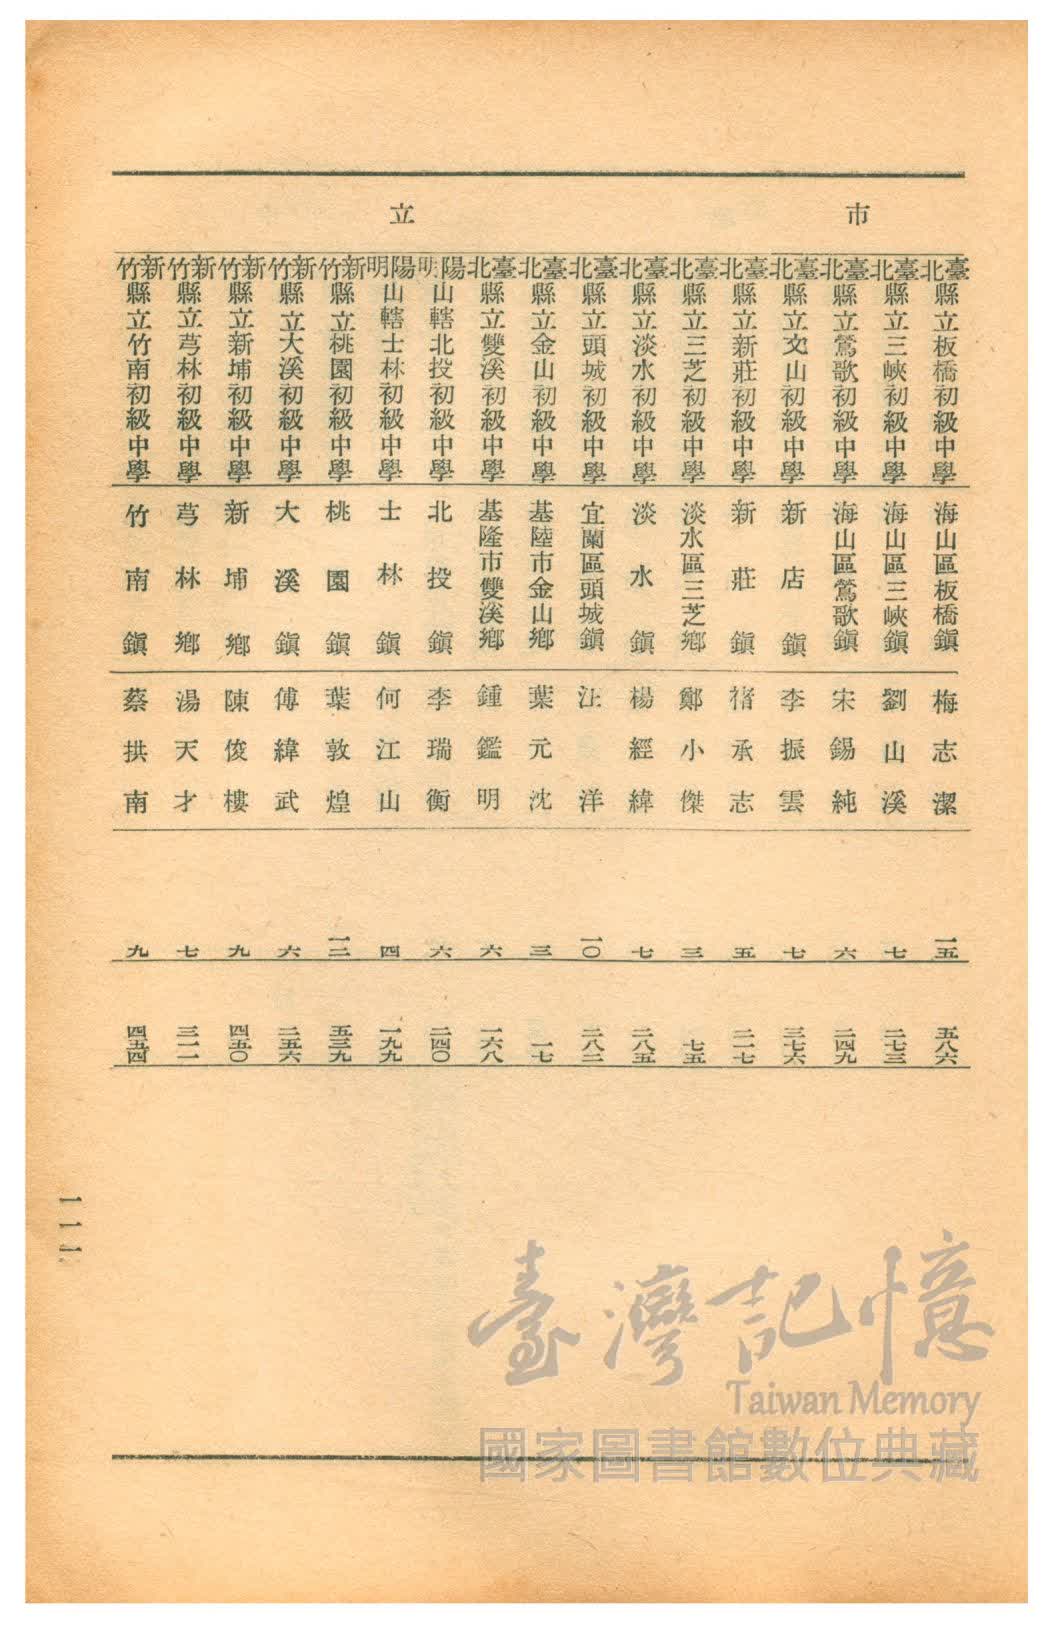 市立
臺北縣立板橋初級中學 海山區板橋鎮 梅志潔 一五 五八六
臺北縣立三峽初級中學 海山區三峽鎮 劉山溪 七 二七三
臺北縣立鶯歌初級中學 海山區鶯歌鎮 宋錫純 六 二四九
臺北縣立文山初級中學 新店鎮 李振雲 七 三七六
臺北縣立新莊初級中學 新莊鎮 承志 五 二一七
臺北縣立三芝初級中學 淡水區三芝鄉 鄭小傑 三 七五
臺北縣立淡水初級中學 淡水鎮 楊經緯 七 二八五
臺北縣立頭城初級中學 宜蘭區頭城鎮 汪洋 一〇 二八二
臺北縣立金山初級中學 基陸市金山鄉 葉元沈 三 一七
臺北縣立雙溪初級中學 基隆市雙溪鄉 鍾鑑明 六 一六八
陽明山轄北投初級中學 北投鎮 李瑞衡 六 二四〇
陽明山轄士林初級中學 士林鎮 何江山 四 一九九
新竹縣立桃園初級中學 桃園鎮 葉敦煌 一二 五三九
新竹縣立大溪初級中學 大溪鎮 傅緯武 六 二五六
新竹縣立新埔初級中學 新埔鄉 陳俊樓 九 四五〇
新竹縣立芎林初級中學 芎林鄉 湯天才 七 三一一
新竹縣立竹南初級中學 竹南鎮 蔡拱南 九 四五四
臺灣記憶
Taiwan Memory
國家圖書館數位典藏